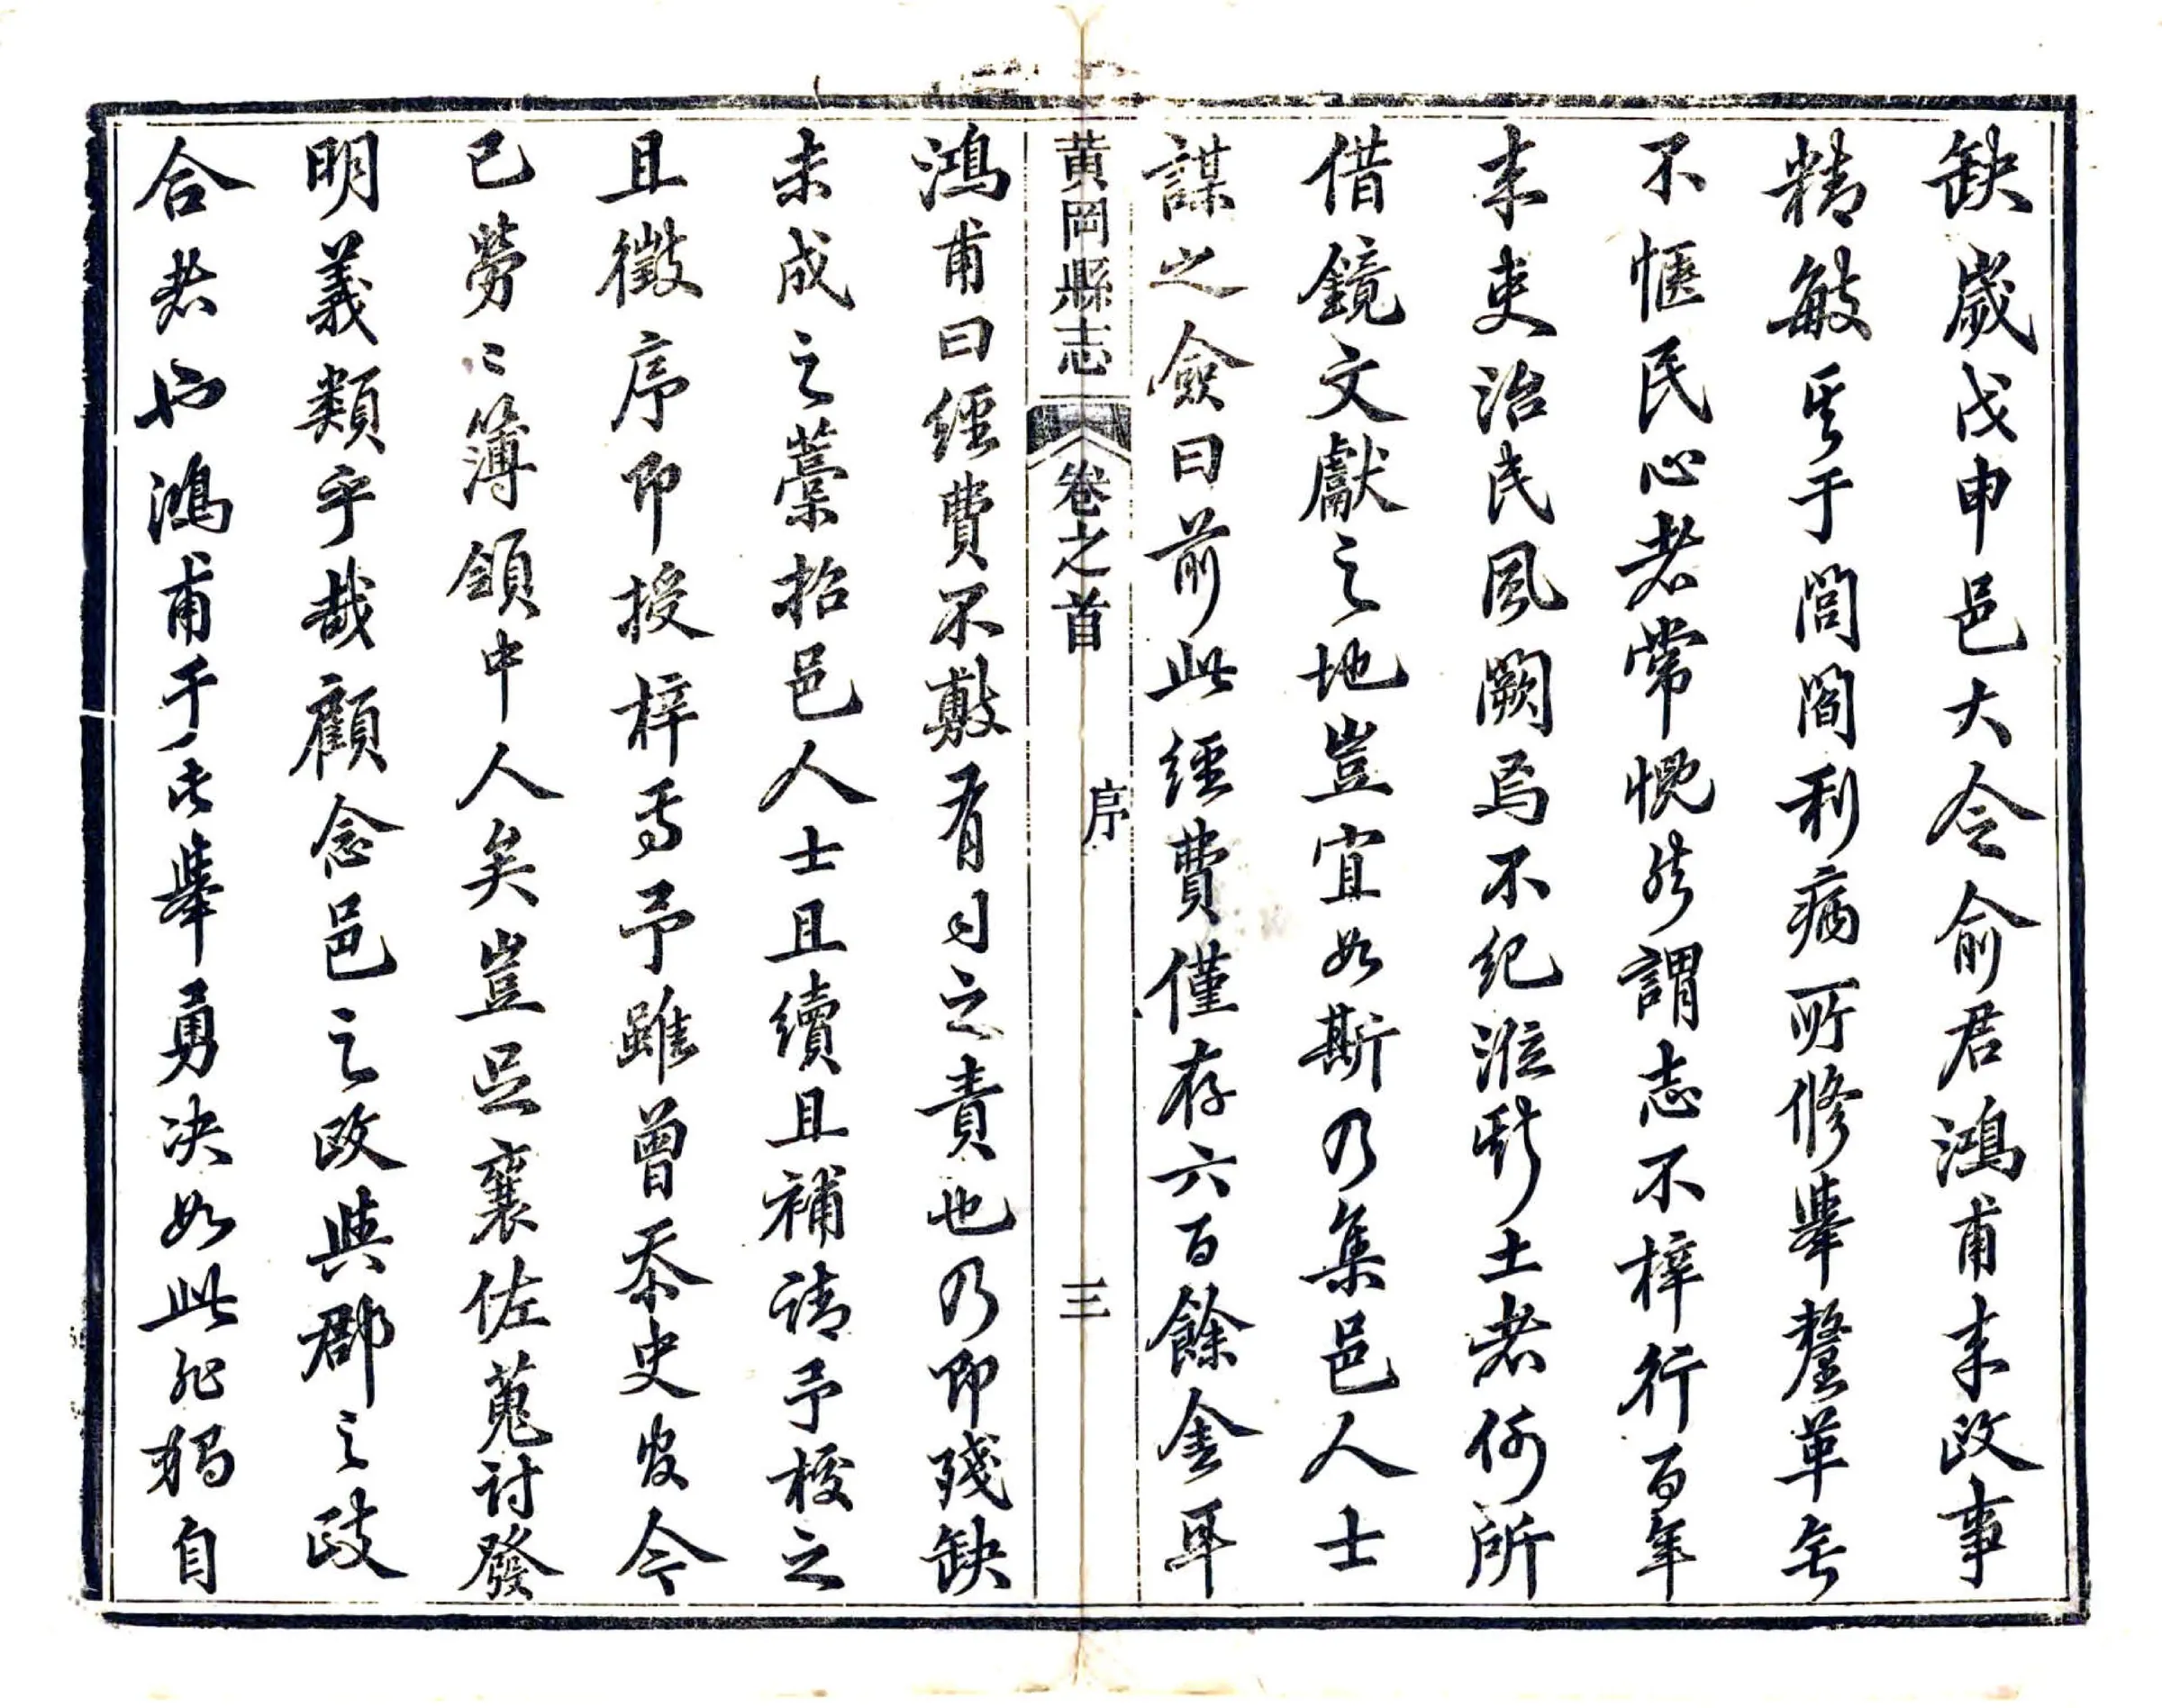 缺歲戊申邑大令俞君鴻甫来政事
精敏其于閭閻利病所修舉釐革無
不愜民心者常慨然謂志不梓行百年
来吏治民風闕焉不紀涖斯土者何所
借鏡文獻之地豈宜如斯乃集邑人士
謀之僉曰前此經費僅存六百餘金耳
黄岡縣志 卷之首 序 三
鴻甫曰經費不敷有司之責也乃即殘缺
未成之藁招邑人士且續且補請予校之
且徵序即授梓焉予雖曾忝史官今
已勞〻簿領中人矣豈足襄佐蒐討發
明義類乎哉顧念邑之政與郡之政
合者也鴻甫于此舉勇决如此非獨自